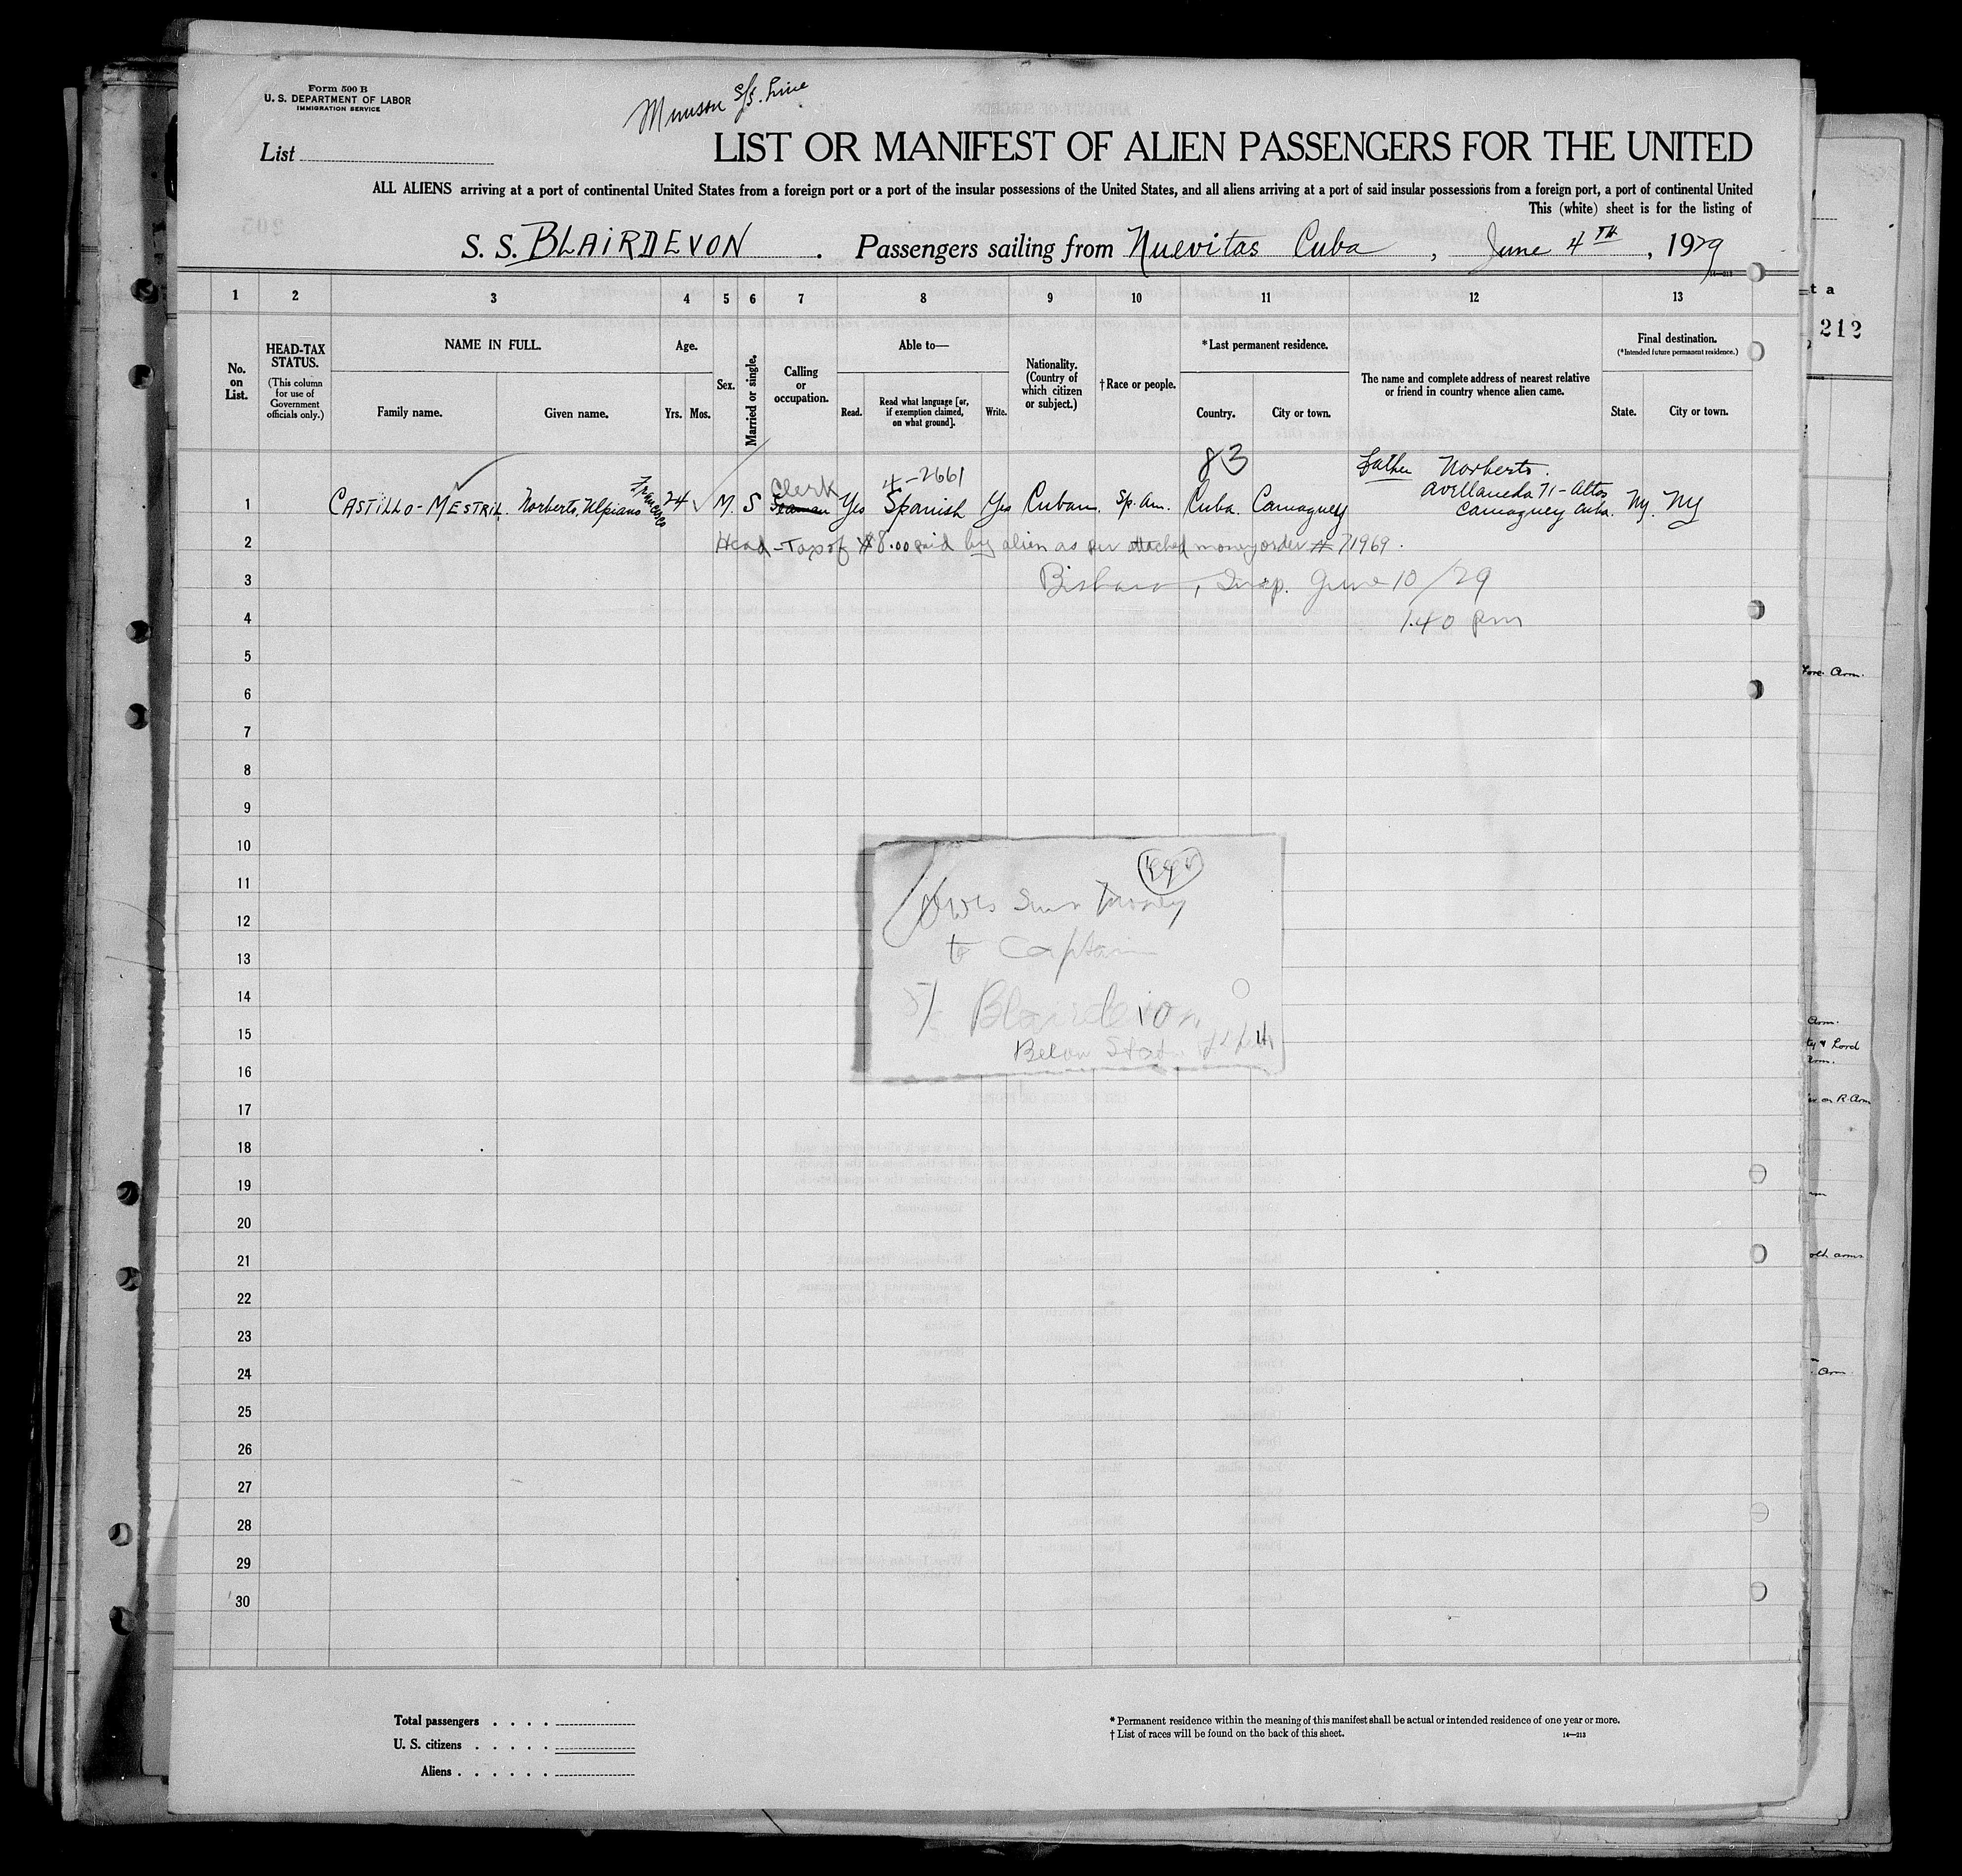 Form 500 B
U. S. DEPARTMENT OF LABOR
IMMIGRATION SERVICE
Munson S/S. Line
List
LIST OR MANIFEST OF ALIEN PASSENGERS FOR THE UNITED
ALL ALIENS arriving at a port of continental United States from a foreign port or a port of the insular possessions of the United States, and all aliens arriving at a port of said insular possessions from a foreign port, a port of continental United
This (white) sheet is for the listing of
S. S. BLAIRDEVON . Passengers sailing from Nuevitas Cuba , June 4TH , 1929
14—213
1 2 3 4 5 6 7 8 9 10 11 12 13
No. on List.
HEAD-TAX STATUS.
(This column for use of Government officials only.)
NAME IN FULL.
Family name. Given name.
Age.
Yrs. Mos.
Sex.
Married or single.
Calling or occupation.
Able to—
Read. Read what language [or, if exemption claimed, on what ground]. Write.
Nationality. (Country of which citizen or subject.)
† Race or people.
* Last permanent residence.
Country. City or town.
The name and complete address of nearest relative or friend in country whence alien came.
Final destination.
(* Intended future permanent residence.)
State. City or town.
83
4-2661
Father Norberto.
Clerk
Avellaneda 71-Altos
1 CASTILLO-MESTRIL. Norberto, Ulpiano Francisco 24 M. S Seaman Yes Spanish Yes Cuban. Sp. Am. Cuba. Camaguey Camaguey Cuba. Ny. Ny
2 Head-Tax of $8.00 paid by alien as per attached money order # 71969.
3 , Insp. June 10/29
4 1.40 pm
5
6
7
8
9
10
11
12
13
14
15
16
17
18
19
20
21
22
23
24
25
26
27
28
29
30
money
to Captain
Blairdevon
Below
Total passengers . . . .
U. S. citizens . . . . .
Aliens . . . . . .
* Permanent residence within the meaning of this manifest shall be actual or intended residence of one year or more.
† List of races will be found on the back of this sheet.
14—213
t a
212
Fore. Arm.
Arm.
& Lord
Arm.
on R. Arm
both arms
Arm